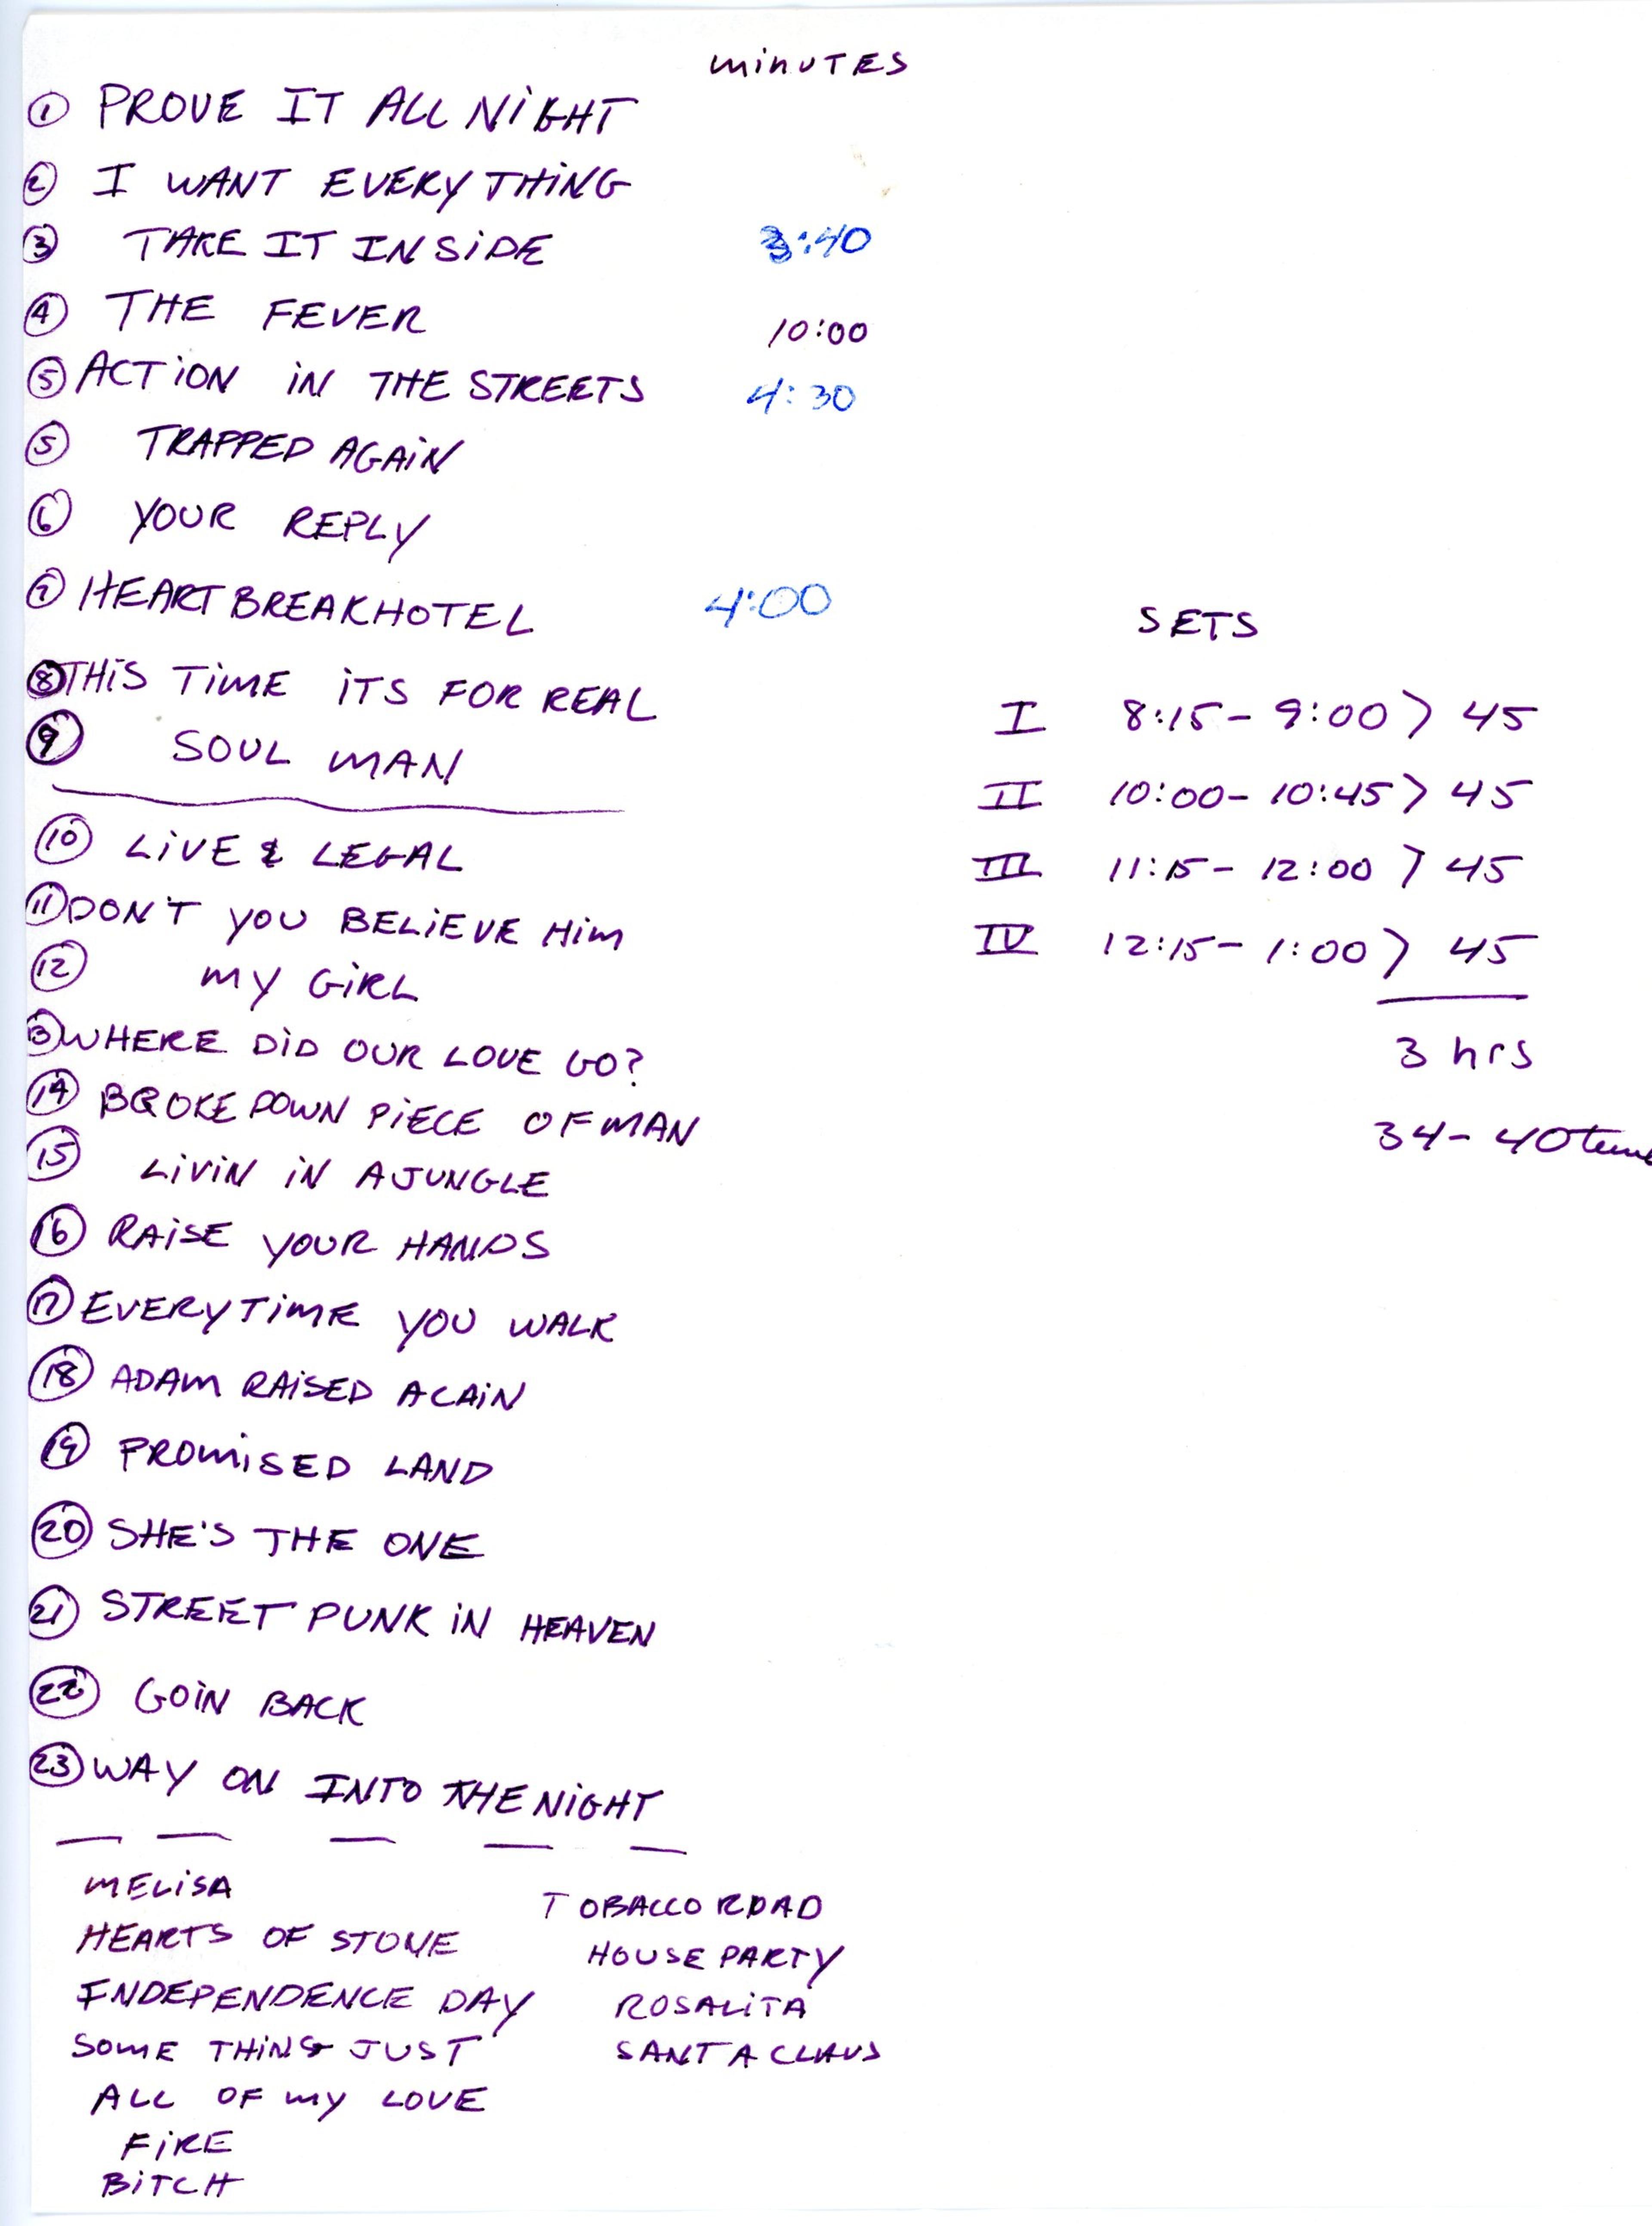 minutes
① PROVE IT ALL NIGHT
② I WANT EVERYTHING
③ TAKE IT INSIDE 3:40
④ THE FEVER 10:00
⑤ ACTION IN THE STREETS 4:30
⑤ TRAPPED AGAIN
⑥ YOUR REPLY
⑦ HEARTBREAK HOTEL 4:00
⑧ THIS TIME ITS FOR REAL
⑨ SOUL MAN
⑩ LIVE & LEGAL
⑪ DON'T YOU BELIEVE HIM
⑫ MY GIRL
⑬ WHERE DID OUR LOVE GO?
⑭ BROKE DOWN PIECE OF MAN
⑮ LIVIN IN A JUNGLE
⑯ RAISE YOUR HANDS
⑰ EVERYTIME YOU WALK
⑱ ADAM RAISED A CAIN
⑲ PROMISED LAND
⑳ SHE'S THE ONE
㉑ STREET PUNK IN HEAVEN
㉒ GOIN BACK
㉓ WAY ON INTO THE NIGHT
MELISA
HEARTS OF STONE
INDEPENDENCE DAY
SOME THING JUST
ALL OF MY LOVE
FIRE
BITCH
TOBACCO ROAD
HOUSE PARTY
ROSALITA
SANTA CLAUS
SETS
I 8:15 - 9:00 > 45
II 10:00 - 10:45 > 45
III 11:15 - 12:00 > 45
IV 12:15 - 1:00 > 45
3 hrs
34 - 40